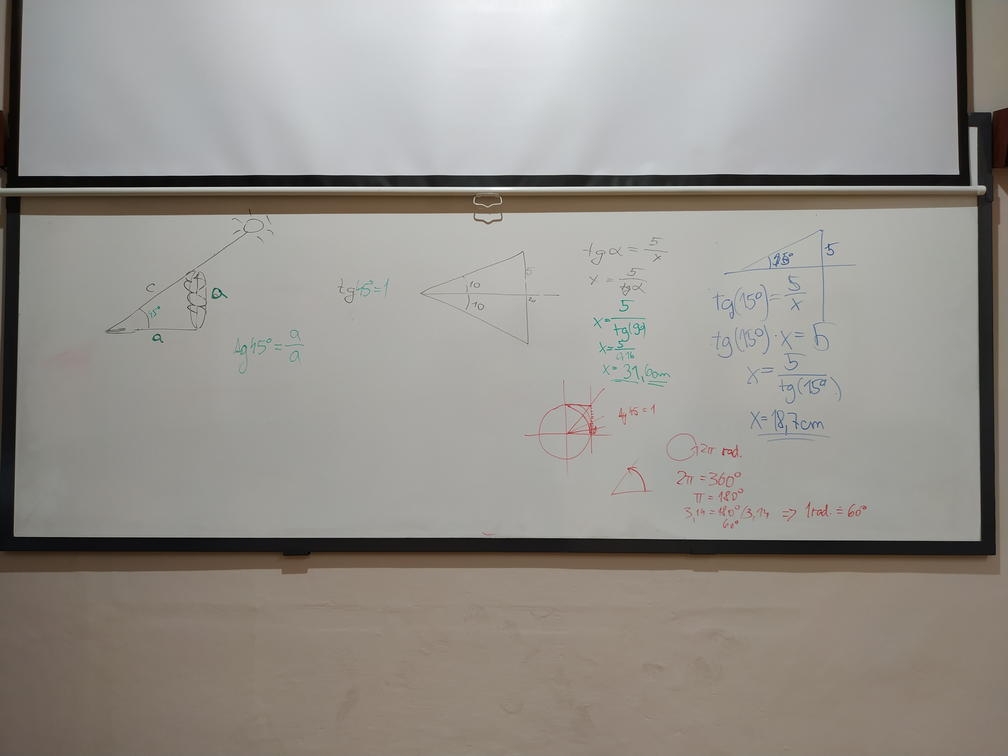 c
45°
a
a
tg45°=1
tg45°=a/a
10
10
5
tg α = 5/x
x = 5/tgα
x= 5/tg(9°)
x= 5/0,16
x= 31,60m
tg 45=1
15°
5
tg(15°)= 5/x
tg(15°)·x=5
x= 5/tg(15°)
x=18,7cm
2π rad.
2π=360°
π=180°
3,14=180°/3,14 => 1rad.≐60°
60°